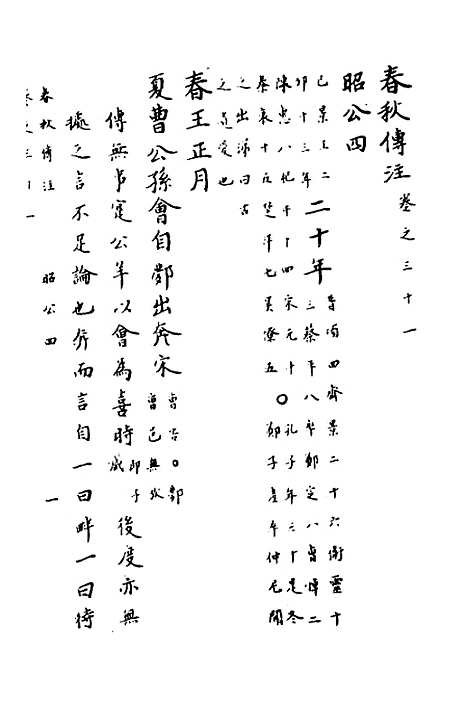 春秋傳注 卷之三十一
昭公四
己景王二
卯十三年 二十年 晉頃四齊景二十六衛靈十
三蔡平八卒鄭定八曹悼二
陳惠八杞平十四宋元十 〇孔子年三十是冬
秦哀十五楚平七吳僚五 〇鄭子產卒仲尼聞
之出涕曰古
之遺愛也
春王正月
夏曹公孫會自鄸出奔宋 曹邑無
傳無事定公羊以會為喜時 後度亦無
據之言不足論也胡而言自一曰畔一曰待
春秋傳注 昭公四 一
卷之三十一